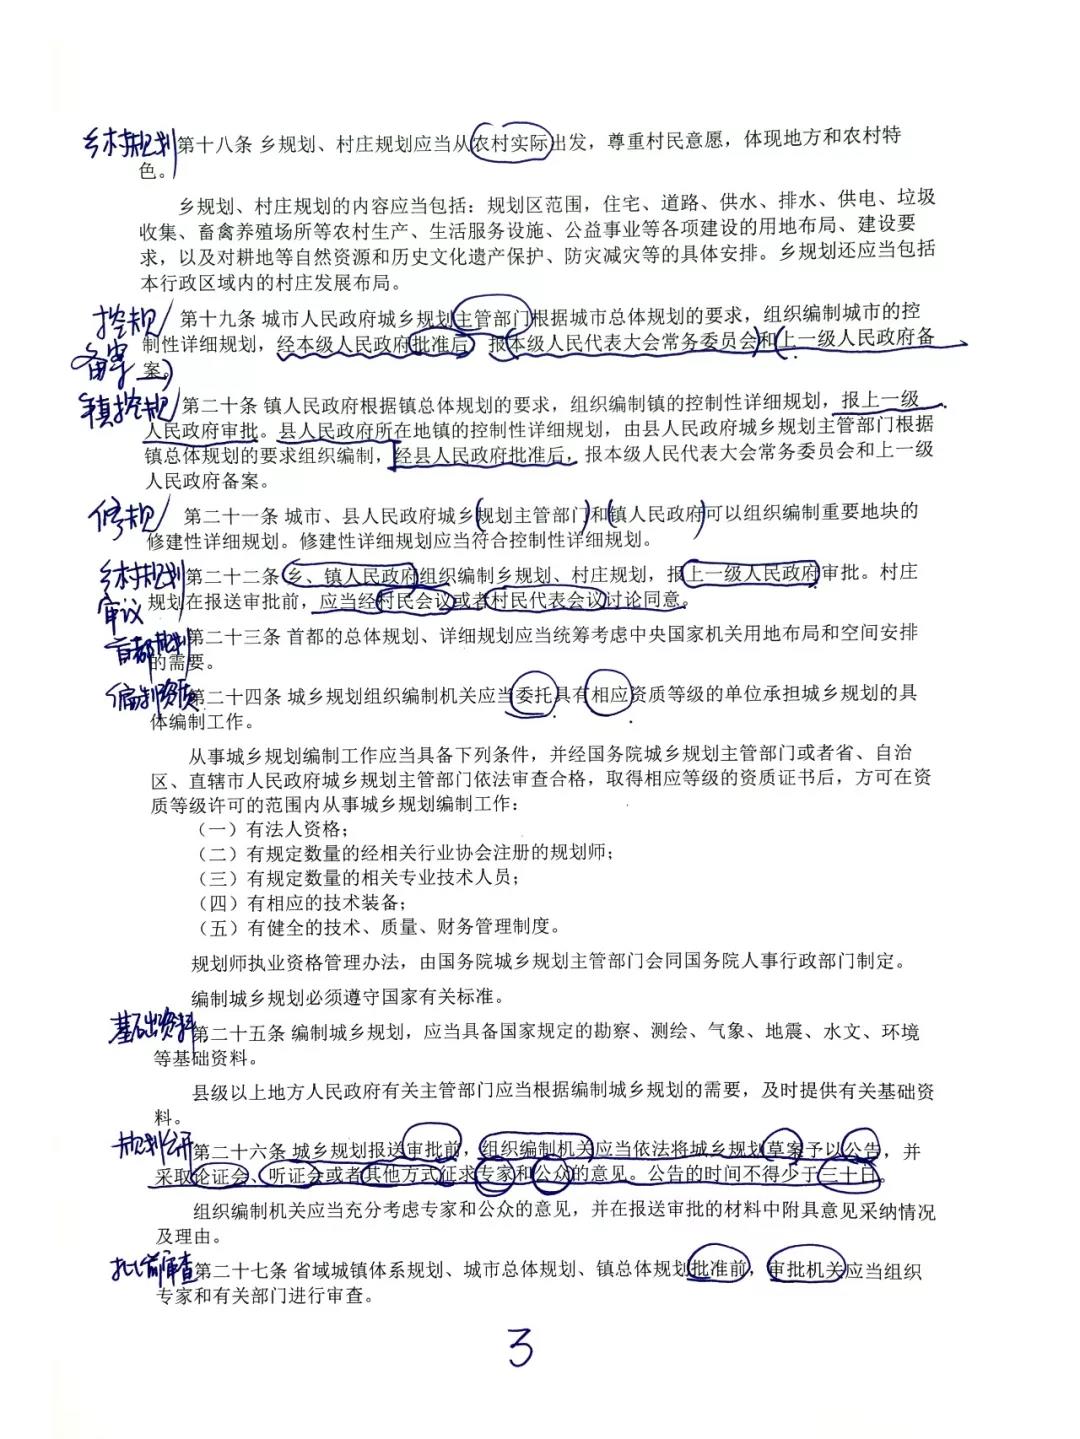 乡村规划 第十八条 乡规划、村庄规划应当从农村实际出发，尊重村民意愿，体现地方和农村特
色。
乡规划、村庄规划的内容应当包括：规划区范围，住宅、道路、供水、排水、供电、垃圾
收集、畜禽养殖场所等农村生产、生活服务设施、公益事业等各项建设的用地布局、建设要
求，以及对耕地等自然资源和历史文化遗产保护、防灾减灾等的具体安排。乡规划还应当包括
本行政区域内的村庄发展布局。
控规 第十九条 城市人民政府城乡规划主管部门根据城市总体规划的要求，组织编制城市的控
备案 制性详细规划，经本级人民政府批准后，报本级人民代表大会常务委员会和上一级人民政府备
案。
镇控规 第二十条 镇人民政府根据镇总体规划的要求，组织编制镇的控制性详细规划，报上一级
人民政府审批。县人民政府所在地镇的控制性详细规划，由县人民政府城乡规划主管部门根据
镇总体规划的要求组织编制，经县人民政府批准后，报本级人民代表大会常务委员会和上一级
人民政府备案。
修规 第二十一条 城市、县人民政府城乡规划主管部门和镇人民政府可以组织编制重要地块的
修建性详细规划。修建性详细规划应当符合控制性详细规划。
乡村规划 第二十二条 乡、镇人民政府组织编制乡规划、村庄规划，报上一级人民政府审批。村庄
审议 规划在报送审批前，应当经村民会议或者村民代表会议讨论同意。
首都规划 第二十三条 首都的总体规划、详细规划应当统筹考虑中央国家机关用地布局和空间安排
的需要。
编制资质 第二十四条 城乡规划组织编制机关应当委托具有相应资质等级的单位承担城乡规划的具
体编制工作。
从事城乡规划编制工作应当具备下列条件，并经国务院城乡规划主管部门或者省、自治
区、直辖市人民政府城乡规划主管部门依法审查合格，取得相应等级的资质证书后，方可在资
质等级许可的范围内从事城乡规划编制工作：
（一）有法人资格；
（二）有规定数量的经相关行业协会注册的规划师；
（三）有规定数量的相关专业技术人员；
（四）有相应的技术装备；
（五）有健全的技术、质量、财务管理制度。
规划师执业资格管理办法，由国务院城乡规划主管部门会同国务院人事行政部门制定。
编制城乡规划必须遵守国家有关标准。
基础资料 第二十五条 编制城乡规划，应当具备国家规定的勘察、测绘、气象、地震、水文、环境
等基础资料。
县级以上地方人民政府有关主管部门应当根据编制城乡规划的需要，及时提供有关基础资
料。
规划公开 第二十六条 城乡规划报送审批前，组织编制机关应当依法将城乡规划草案予以公告，并
采取论证会、听证会或者其他方式征求专家和公众的意见。公告的时间不得少于三十日。
组织编制机关应当充分考虑专家和公众的意见，并在报送审批的材料中附具意见采纳情况
及理由。
批前审查 第二十七条 省域城镇体系规划、城市总体规划、镇总体规划批准前，审批机关应当组织
专家和有关部门进行审查。
3